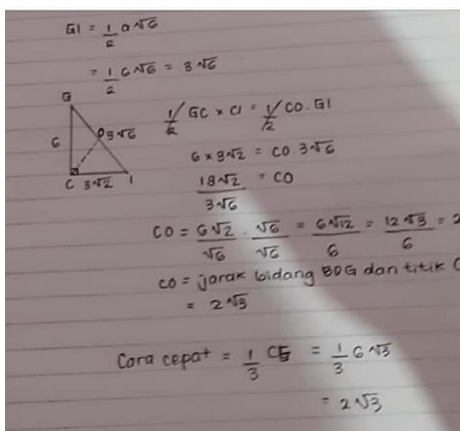 GI = 1/2 a√6
= 1/2 6√6 = 3√6
G
6
O
3√6
C
3√2
I
1/2 GC x CI = 1/2 CO . GI
6 x 3√2 = CO 3√6
18√2 / 3√6 = CO
CO = 6√2/√6 . √6/√6 = 6√12/6 = 12√3/6 = 2
CO = jarak bidang BDG dan titik C
= 2√3
Cara cepat = 1/3 CE = 1/3 6√3
= 2√3